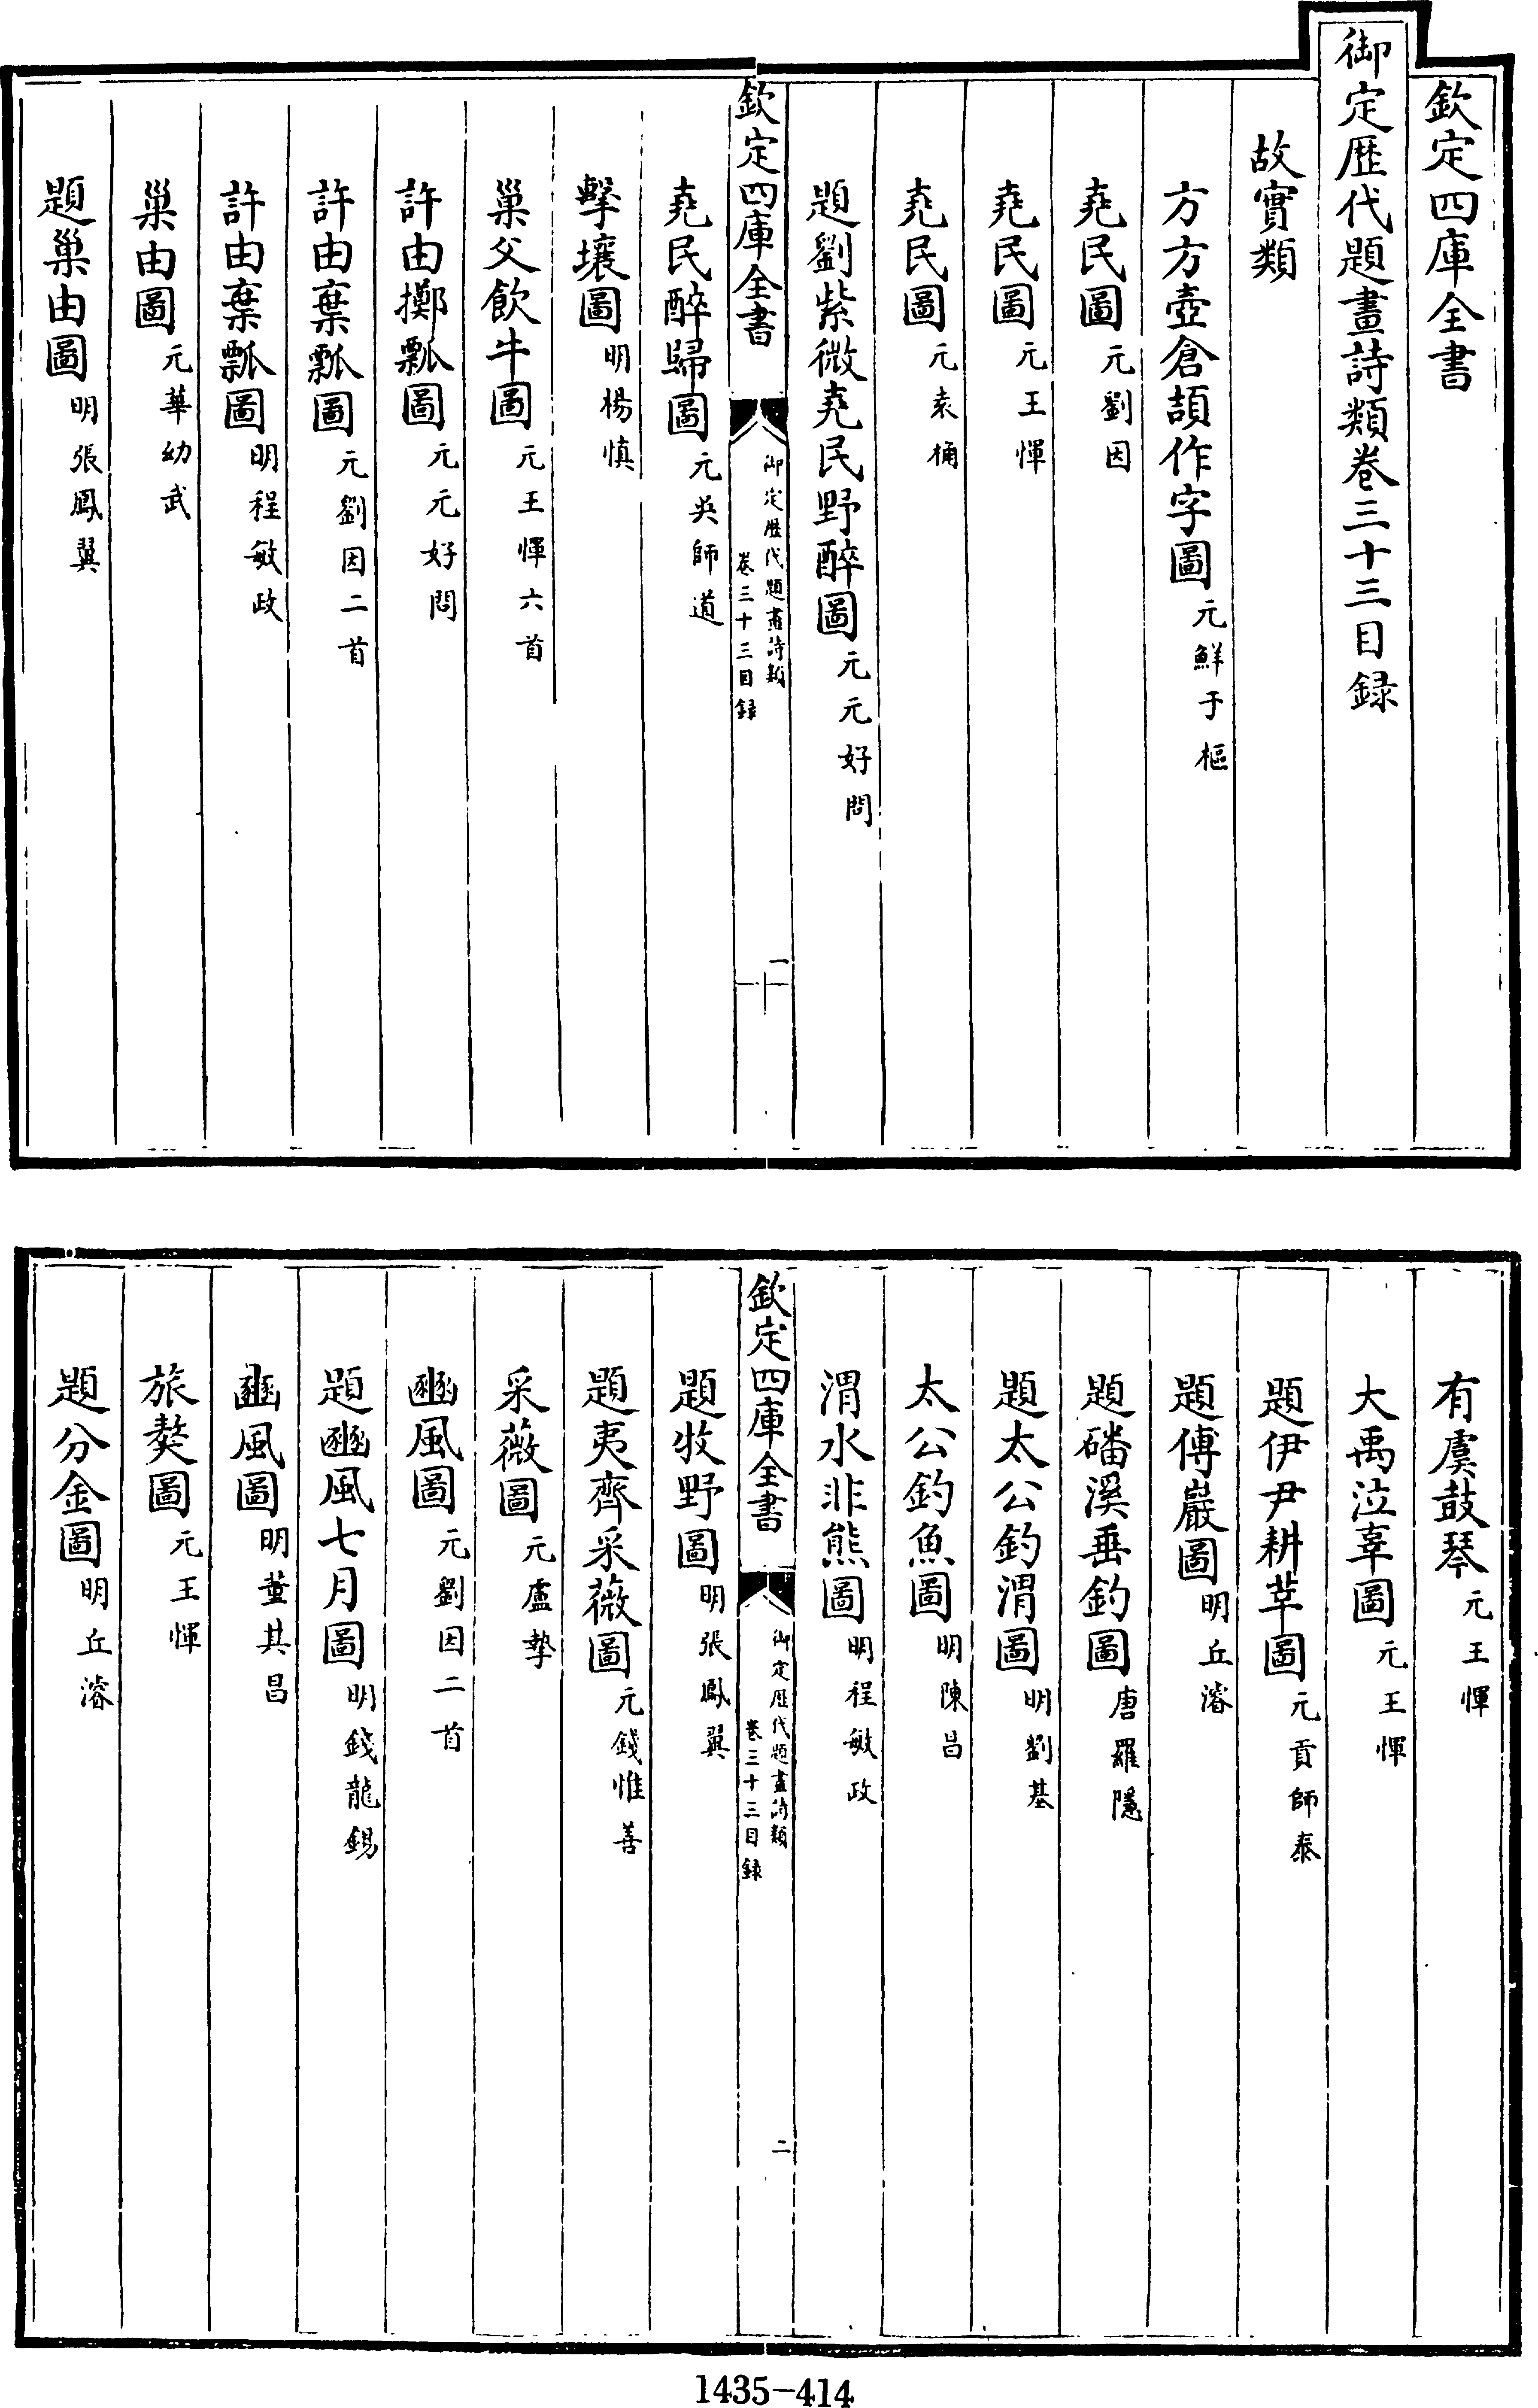 欽定四庫全書
御定歴代題畫詩類卷三十三目録
故實類
方方壺倉頡作字圖元鮮于樞
堯民圖元劉因
堯民圖元王惲
堯民圖元袁桷
題劉紫微堯民野醉圖元元好問
欽定四庫全書
御定歴代題畫詩類
卷三十三目録
一
堯民醉歸圖元吳師道
擊壤圖明楊慎
巢父飲牛圖元王惲六首
許由擲瓢圖元元好問
許由棄瓢圖元劉因二首
許由棄瓢圖明程敏政
巢由圖元華幼武
題巢由圖明張鳳翼
有虞鼓琴元王惲
大禹泣辜圖元王惲
題伊尹耕莘圖元貢師泰
題傅巖圖明丘濬
題磻溪垂釣圖唐羅隱
題太公釣渭圖明劉基
太公釣魚圖明陳昌
渭水非熊圖明程敏政
欽定四庫全書
御定歴代題畫詩類
卷三十三目録
二
題牧野圖明張鳳翼
題夷齊采薇圖元錢惟善
采薇圖元盧摯
豳風圖元劉因二首
題豳風七月圖明錢龍錫
豳風圖明董其昌
旅獒圖元王惲
題分金圖明丘濬
1435-414